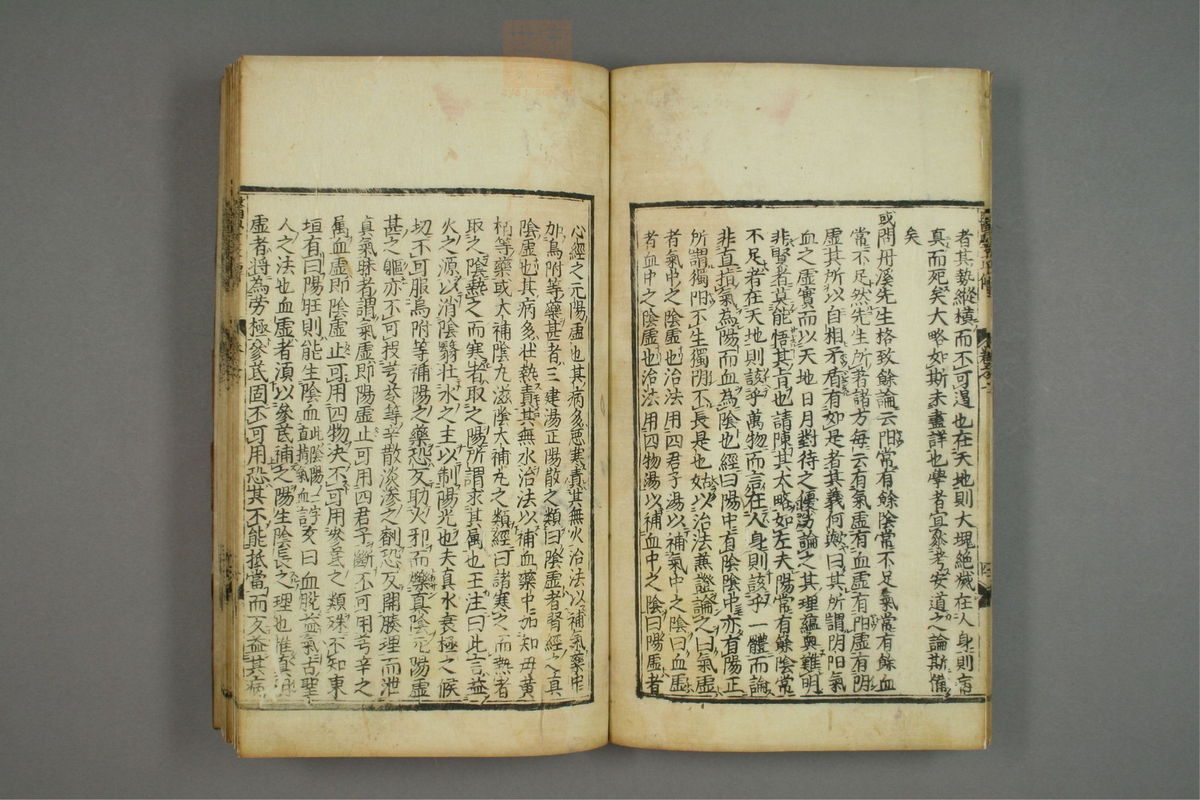 者其勢縱橫而不可遏也在天地則大塊絕滅在人身則喪
真而死矣大略如斯未盡詳也學者宜參考安道之論斯備
矣
或問丹溪先生格致餘論云阳常有餘陰常不足氣常有餘血
常不足然先生所著諸方每云有氣虛有血虛有阳虛有阴
虛其所以自相矛盾有如是者其義何歟曰其所謂阴阳氣
血之虛實而以天地日月對待之優劣論之其理蘊奧難明
非賢者莫能悟其旨也請陳其大略如左夫陽常有餘陰常
不足者在天地則該乎萬物而言在人身則該乎一體而論
非直指氣為陽而血為陰也經曰陽中有陰陰中亦有陽正
所謂獨阳不生獨阴不長是也姑以治法兼證論之曰氣虛
者氣中之陰虛也治法用四君子湯以補氣中之陰曰血虛
者血中之陰虛也治法用四物湯以補血中之陰曰陽虛者
心經之元陽虛也其病多惡寒責其無火治法以補氣藥中
加烏附等藥甚者三建湯正陽散之類曰陰虛者腎經之真
陰虛也其病多壯熱責其無水治法以補血藥中加知母黄
柏等藥或大補陰丸滋陰大補丸之類經曰諸寒之而熱者
取之陰熱之而寒者取之陽所謂求其属也王注曰此言益
火之源以消陰翳壮水之主以制陽光也夫真水衰極之候
切不可服烏附等補陽之藥恐反助火邪而爍真陰元陽虛
甚之軀亦不可投芎芩等辛散淡滲之劑恐反開腠理而泄
真氣昧者謂氣虛即陽虛止可用四君子斷不可用芎辛之
属血虛即陰虛止可用四物決不可用參芪之類殊不知東
垣有曰陽旺則能生陰血此陰陽二字直指氣血言又曰血脫益氣古聖
人之法也血虛者須以參芪補之陽生陰長之理也惟真陰
虛者將為勞極參芪固不可用恐其不能抵當而反益其病